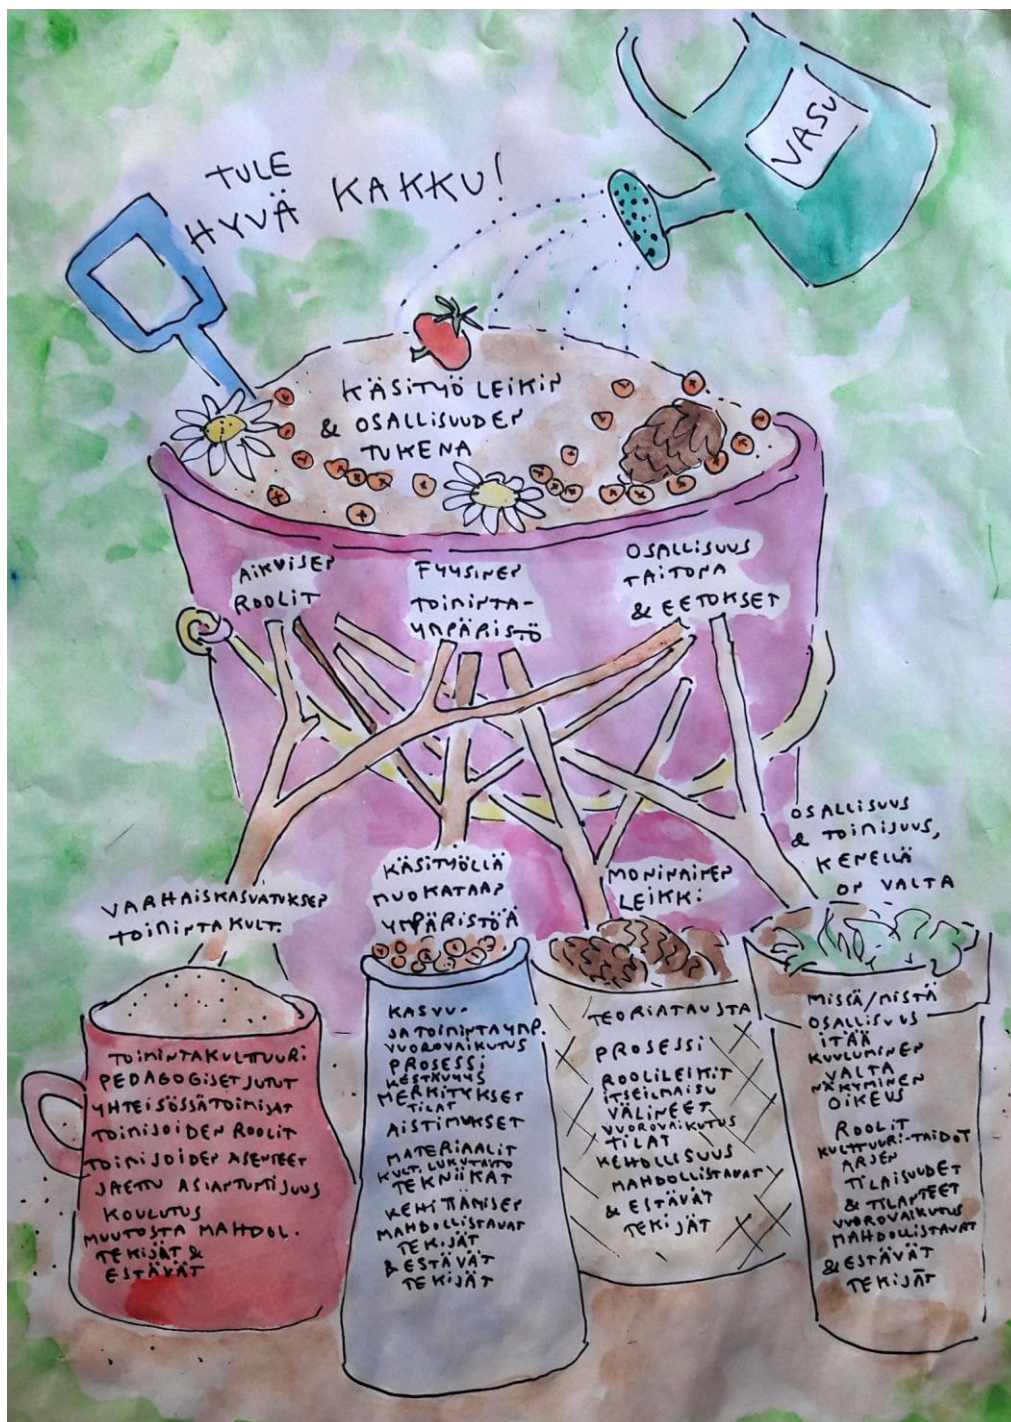 TULE
HYVÄ KAKKU!
VASU
KÄSITYÖ LEIKIN
& OSALLISUUDEN
TUKENA
AIKUISEN
ROOLIT
FYYSINEN
TOIMINTA-
YMPÄRISTÖ
OSALLISUUS
TAITONA
& EETOKSET
VARHAISKASVATUKSEN
TOIMINTAKULT.
KÄSITYÖLLÄ
MUOKATAAN
YMPÄRISTÖÄ
MONINAINEN
LEIKKI
OSALLISUUS
& TOIMIJUUS,
KENELLÄ
ON VALTA
TOIMINTAKULTTUURI
PEDAGOGISET JUTUT
YHTEISÖSSÄ TOIMIJAT
TOIMIJOIDEN ROOLIT
TOIMIJOIDEN ASENTEET
JAETTU ASIANTUNTIJUUS
KOULUTUS
MUUTOSTA MAHDOL.
TEKIJÄT &
ESTÄVÄT
KASVU-
JA TOIMINTAYMP.
VUOROVAIKUTUS
PROSESSI
KESTÄVYYS
MERKITYKSET
TILAT
AISTIMUKSET
MATERIAALIT
KULT. LUKUTAITO
TEKNIIKAT
KEHITTÄMISEN
MAHDOLLISTAVAT
TEKIJÄT
& ESTÄVÄT
TEKIJÄT
TEORIATAUSTA
PROSESSI
ROOLILEIKIT
ITSEILMAISU
VÄLINEET
VUOROVAIKUTUS
TILAT
KEHOLLISUUS
MAHDOLLISTAVAT
& ESTÄVÄT
TEKIJÄT
MISSÄ/MISTÄ
OSALLISUUS
ITÄÄ
KUULUMINEN
VALTA
NÄKYMINEN
OIKEUS
ROOLIT
KULTTUURI-TAIDOT
ARJEN
TILAISUUDET
& TILANTEET
VUOROVAIKUTUS
MAHDOLLISTAVAT
& ESTÄVÄT
TEKIJÄT